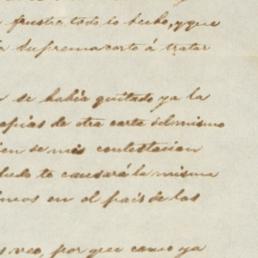 frustra todo lo hecho, y que
Suprema corte á tratar
se habia quitado ya la
copias de otra carta del mismo
en se mis contestacion
te causará la misma
en el pais de los
veo, por que como ya